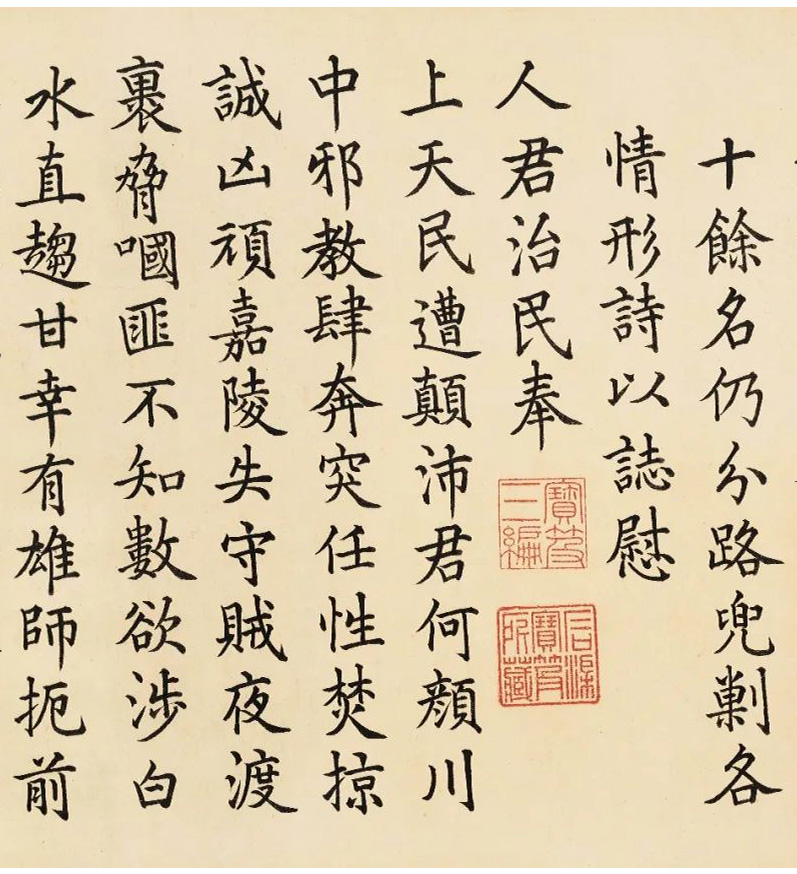 十餘名仍分路兜剿各
情形詩以誌慰
人君治民奉
寶笈三編
石渠寶笈所藏
上天民遭顛沛君何顏川
中邪教肆奔突任性焚掠
誠凶頑嘉陵失守賊夜渡
裹脅嘓匪不知數欲涉白
水直趨甘幸有雄師扼前